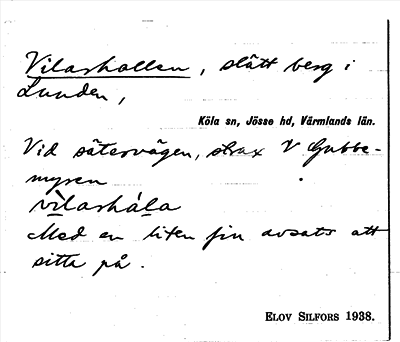 Vilarhallen, slätt berg i
Lunden,
Köla sn, Jösse hd, Värmlands län.
Vid sätervägen, strax V Gubbe-
myren
vìlarhála
Med en liten fin avsats att
sitta på.
ELOV SILFORS 1938.